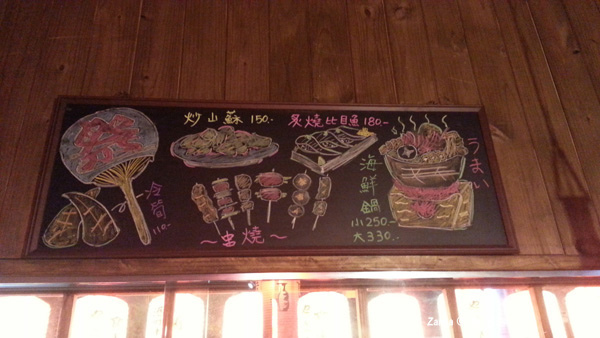 炒山蘇 150.-
炙燒比目魚 180.-
祭
冷筍
110.-
~串燒~
海鮮鍋
小250-
大330.-
うまい